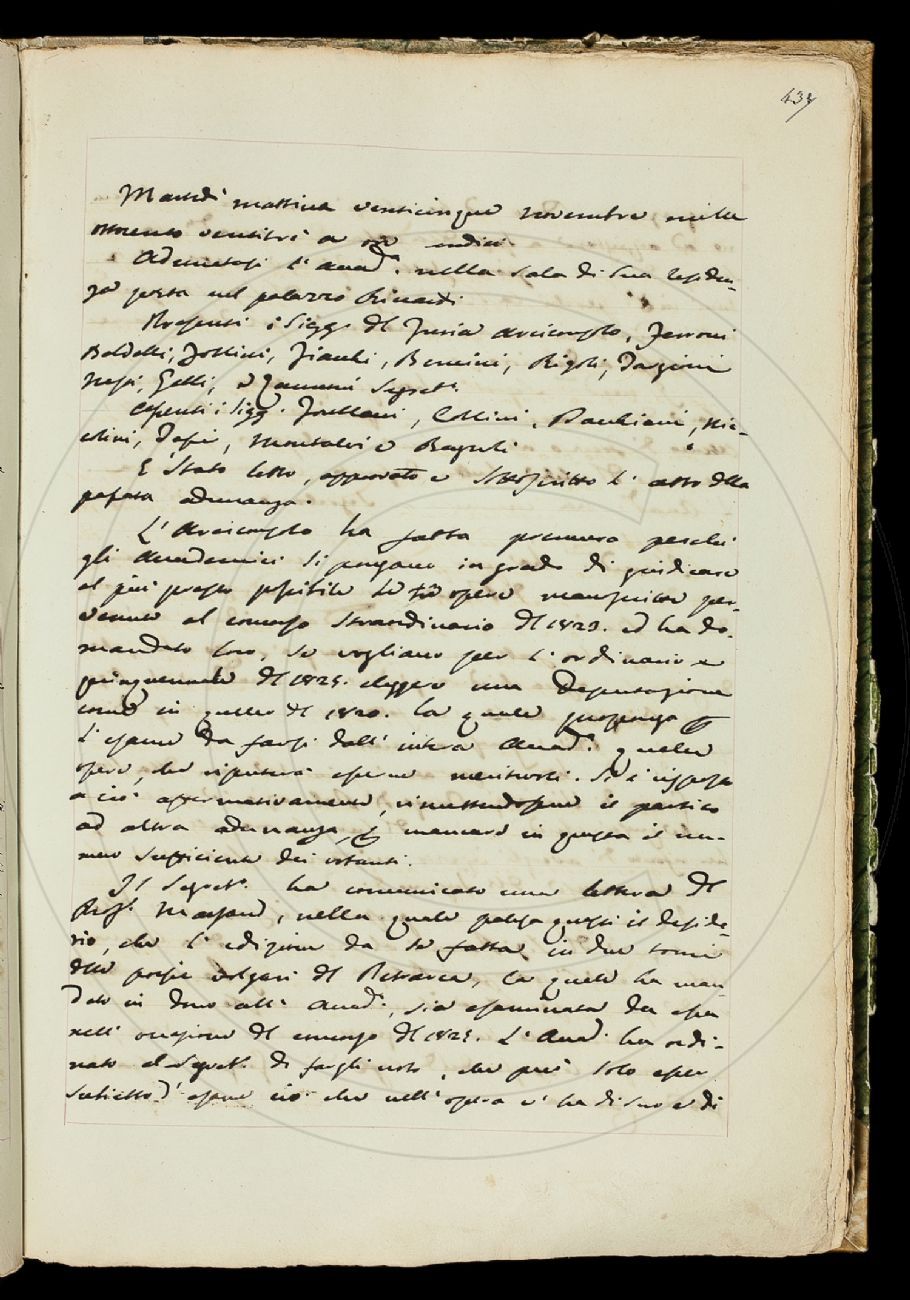 437
Martedì mattina venticinque novembre mille
ottocento ventitrè a ore undici.
Adunatasi l'Accad.ª nella sala di sua residen-
za posta nel palazzo Rinardi
Presenti i Sigg. Del Furia Arciconsolo, Ferroni
Baldelli, Zollini, Fiacchi, Bencini, Rigoli, Targioni
Nesi, Gelli, e Zannoni Segret.º
Assenti i Sigg. Collini, Nic-
colini, Montalvi e Bagnoli
È stato letto, approvato e sottoscritto l'atto della
passata adunanza.
L'Arciconsolo ha fatta premura perchè
gli Accademici si pongano in grado di giudicare
al più presto possibile le tre opere manoscritte per-
venute al concorso straordinario del 1823. ed ha do-
mandato loro, se vogliano per l'ordinario e
quinquennale del 1825. eleggere una Deputazione
come in quello del 1820. la quale proponga per
l'esame da farsi dall'intera Accad.ª quelle
opere, che riputerà esserne meritevoli. Si è risposto
a ciò affermativamente, rimettendosene il partito
ad altra adunanza, per mancare in questa il nu-
mero sufficiente dei votanti.
Il Segret.º ha comunicato una lettera del
Prof.e Marsand, nella quale palesa questi il deside-
rio, che l'edizione da se fatta in due tomi
delle poesie volgari del Petrarca, la quale ha man-
dato in dono all'Accad.ª, sia esaminata da essa
nell'occasione del concorso del 1825. L'Accad.ª ha ordi-
nato al Segret.º di fargli noto, che può solo esser
subietto d'esame ciò che nell'opera v'ha di suo e di